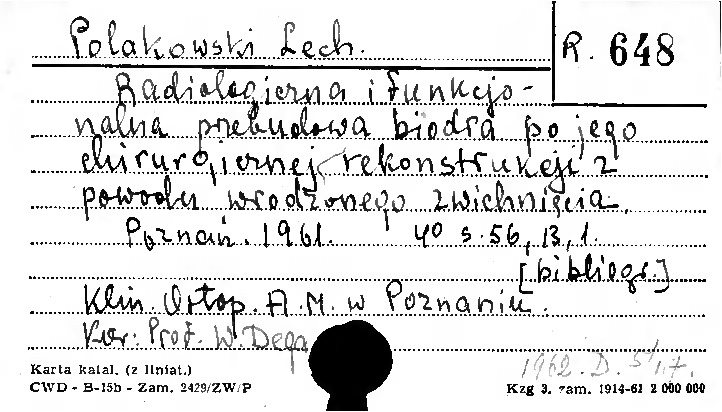 Polakowski Lech.
R. 648
Radiologiczna i funkcjo-
nalna przebudowa biodra po jego
chirurgicznej rekonstrukcji z
powodu wrodzonego zwichnięcia.
Poznań. 1961. 4° s. 56, 13, 1.
[bibliogr.]
Klin. Ortop. A. M. w Poznaniu.
Kier: Prof. W. Dega
1962. D.
Karta katal. (z liniat.)
CWD - B-15b - Zam. 2429/ZW/P
Kzg 3. zam. 1914-61 2 000 000